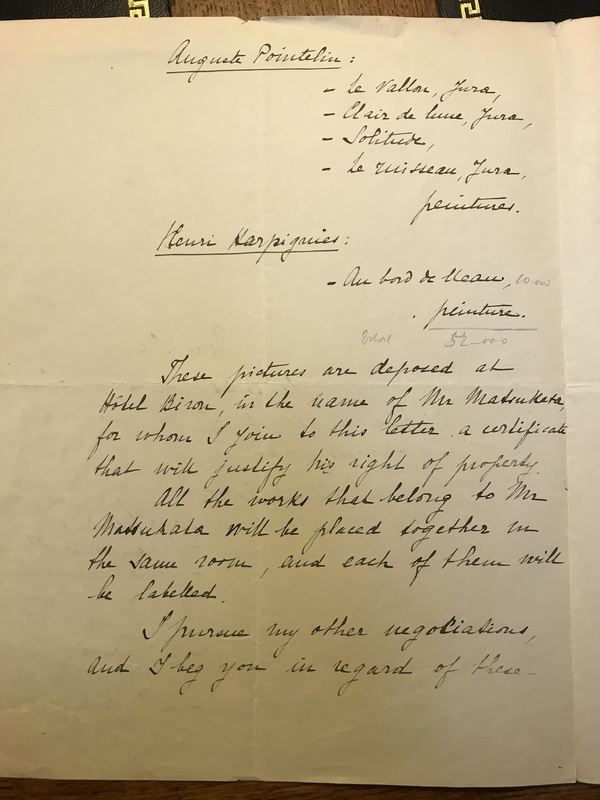 Auguste Pointelin :
- Le Vallon, Jura,
- Clair de lune, Jura,
- Solitude,
- Le Ruisseau, Jura,
peintures.
Henri Harpignies :
- Au bord de l'eau, 10.000
peinture.
Total 52.000
These pictures are deposed at
Hôtel Biron, in the name of Mr Matsukata,
for whom I join to this letter a certificate
that will justify his right of property.
All the works that belong to Mr
Matsukata will be placed together in
the same room, and each of them will
be labelled.
I pursue my other negociations,
and I beg you in regard of these -